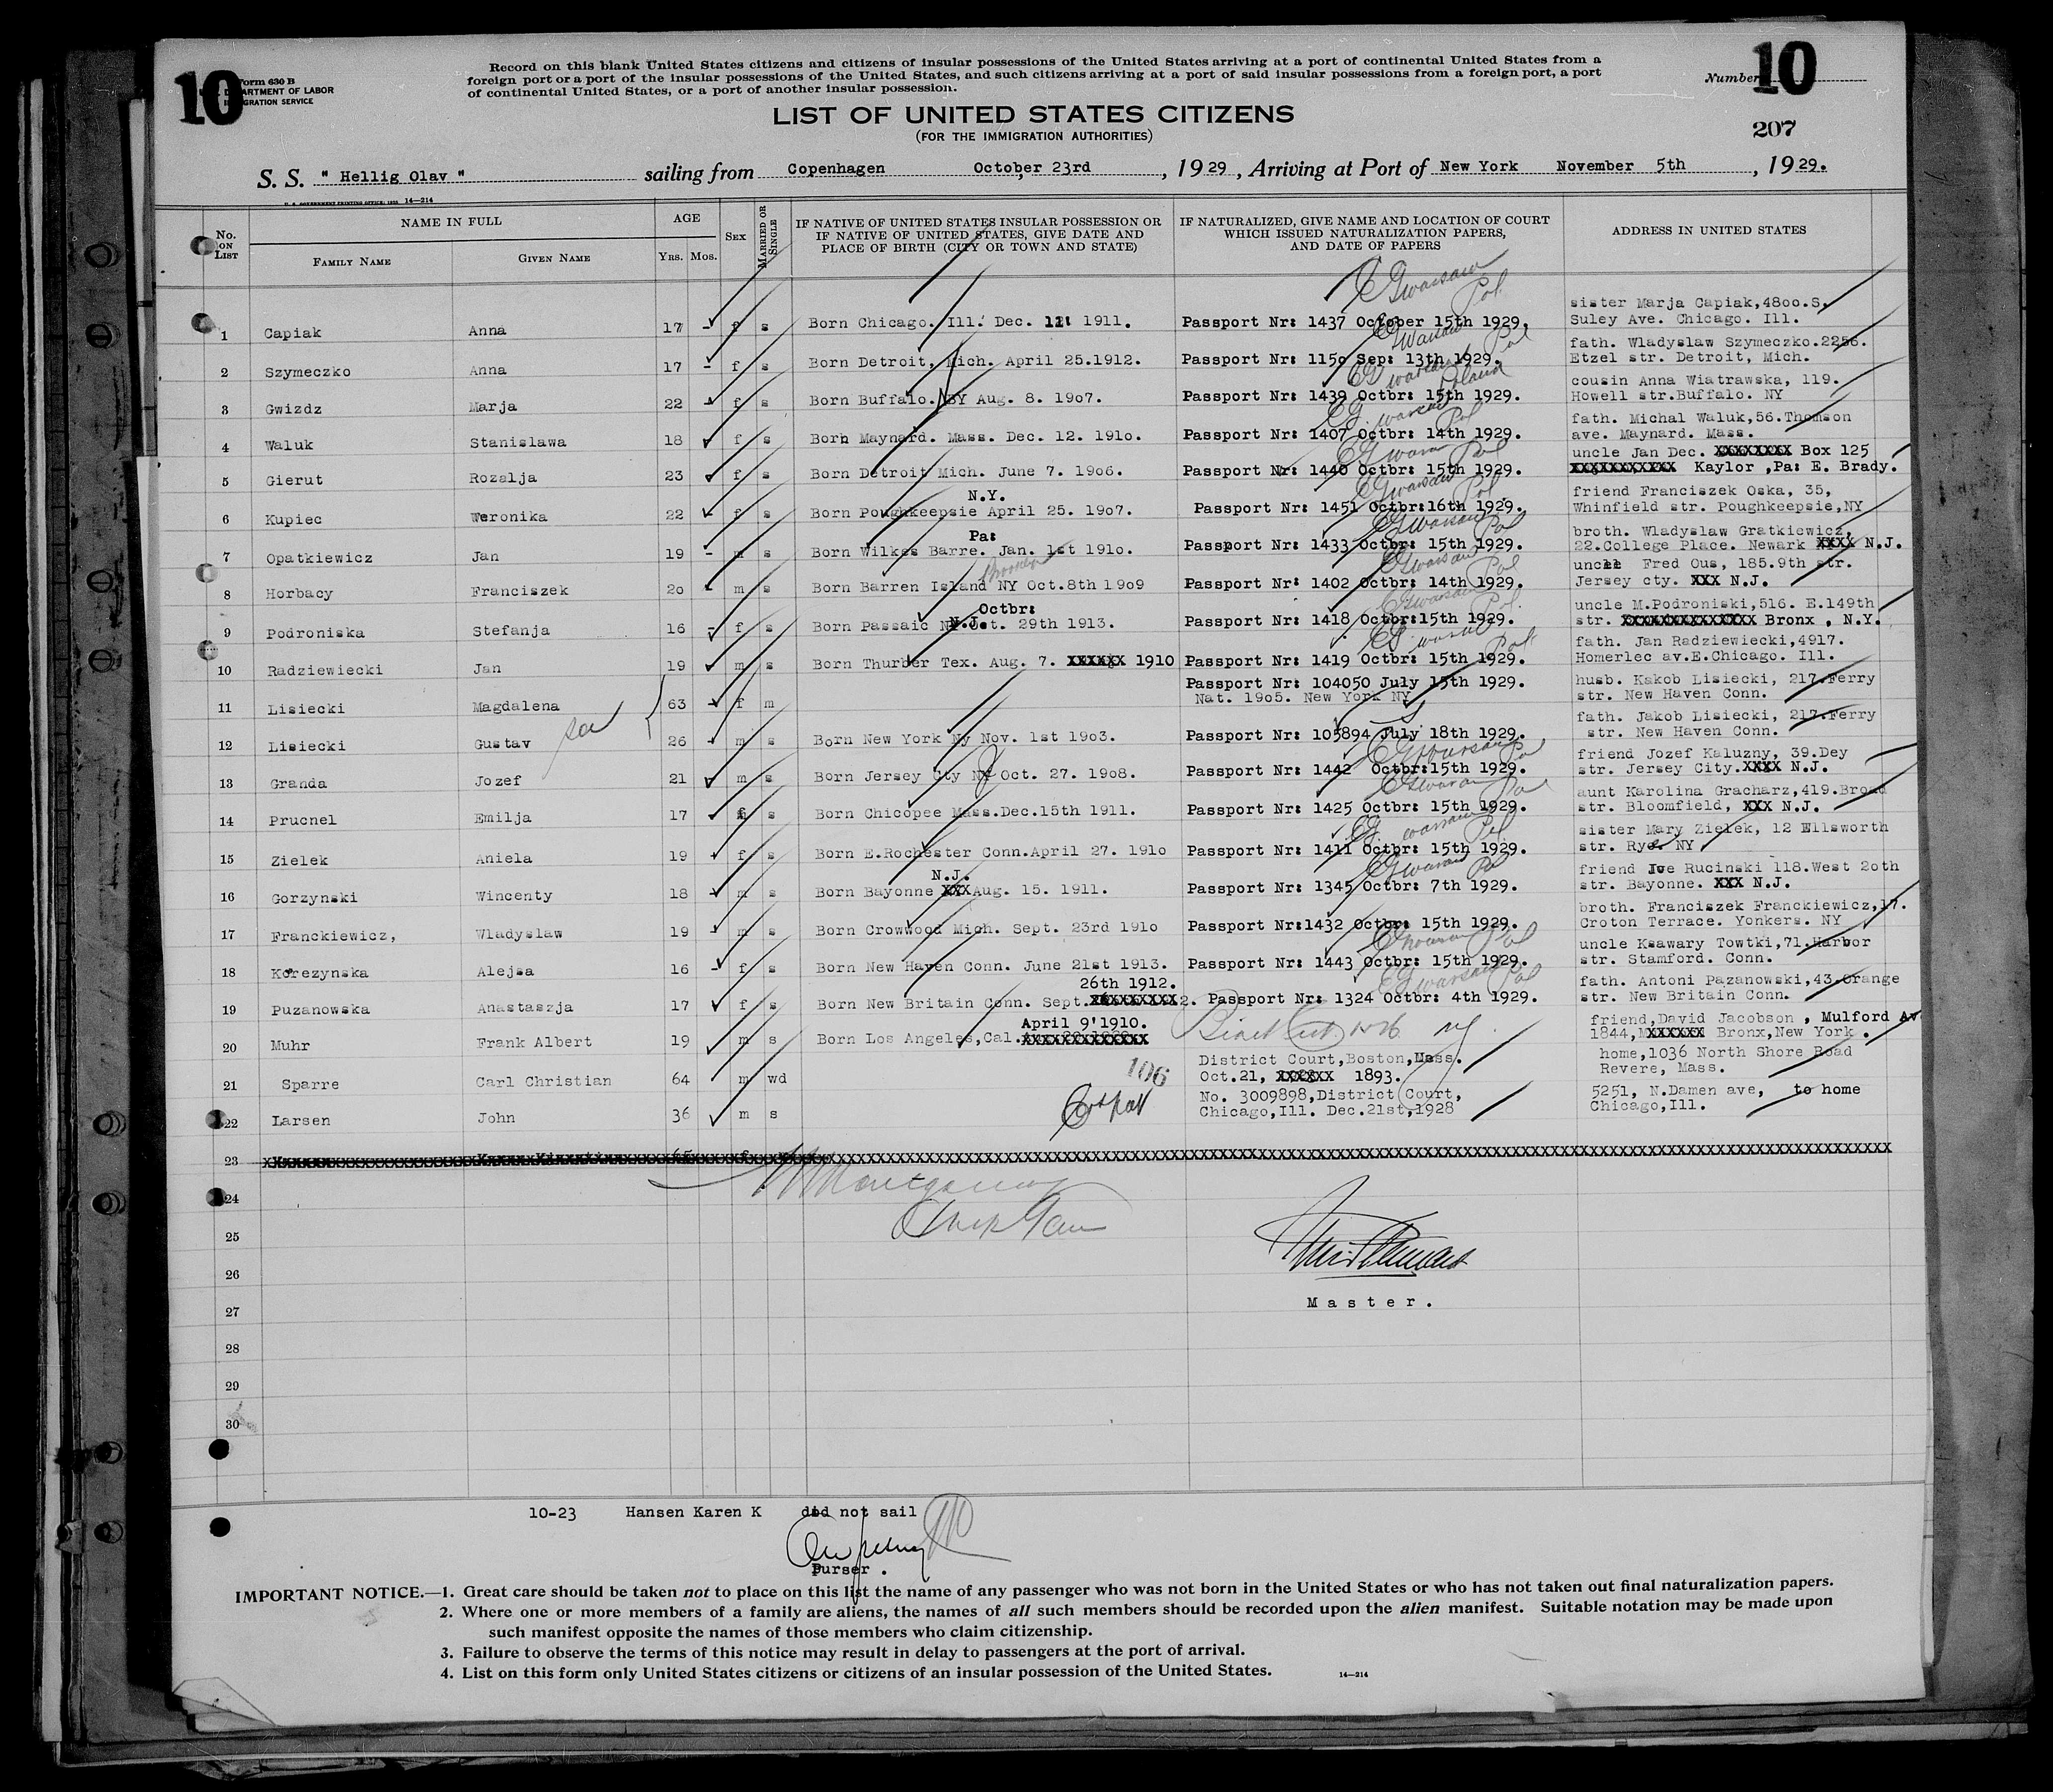 10
Form 630 B
DEPARTMENT OF LABOR
IMMIGRATION SERVICE
Record on this blank United States citizens and citizens of insular possessions of the United States arriving at a port of continental United States from a
foreign port or a port of the insular possessions of the United States, and such citizens arriving at a port of said insular possessions from a foreign port, a port
of continental United States, or a port of another insular possession.
Number 10
LIST OF UNITED STATES CITIZENS
(FOR THE IMMIGRATION AUTHORITIES)
207
S. S. " Hellig Olav " sailing from Copenhagen October 23rd, 1929, Arriving at Port of New York November 5th, 1929.
U. S. GOVERNMENT PRINTING OFFICE: 14—214
No. ON LIST NAME IN FULL AGE SEX MARRIED OR SINGLE IF NATIVE OF UNITED STATES INSULAR POSSESSION OR IF NATIVE OF UNITED STATES, GIVE DATE AND PLACE OF BIRTH (CITY OR TOWN AND STATE) IF NATURALIZED, GIVE NAME AND LOCATION OF COURT WHICH ISSUED NATURALIZATION PAPERS, AND DATE OF PAPERS ADDRESS IN UNITED STATES
FAMILY NAME GIVEN NAME YRS. MOS.
CG Warsaw Pol.
sister Marja Capiak,48oo.S.
1 Capiak Anna 17 - f s Born Chicago. Ill. Dec. 11 1911. Passport Nr: 1437 October 15th 1929. Suley Ave. Chicago. Ill.
CG Warsaw Pol
fath. Wladyslaw Szymeczko.2256.
2 Szymeczko Anna 17 - f s Born Detroit, Mich. April 25.1912. Passport Nr: 115o Sep: 13th 1929. Etzel str. Detroit, Mich.
CG Warsaw Poland
cousin Anna Wiatrawska, 119.
3 Gwizdz Marja 22 - f s Born Buffalo. NY Aug. 8. 19o7. Passport Nr: 1439 Octbr: 15th 1929. Howell str.Buffalo. NY
CG. Warsaw Pol
fath. Michal Waluk,56.Thomson
4 Waluk Stanislawa 18 f s Born Maynard. Mass. Dec. 12. 191o. Passport Nr: 1407 Octbr: 14th 1929. ave. Maynard. Mass.
CG Warsaw Pol
uncle Jan Dec. XXXXXXXX Box 125
5 Gierut Rozalja 23 f s Born Detroit Mich. June 7. 19o6. Passport Nr: 1440 Octbr: 15th 1929. XXXXXXXXXXX Kaylor ,Pa: E. Brady.
N.Y. CG Warsaw Pol.
friend Franciszek Oska, 35,
6 Kupiec Weronika 22 f s Born Poughkeepsie April 25. 19o7. Passport Nr: 1451 Octbr:16th 1929. Whinfield str. Poughkeepsie,NY
Pa: CG Warsaw Pol
broth. Wladyslaw Gratkiewicz,
7 Opatkiewicz Jan 19 - m s Born Wilkes Barre. Jan. 1st 191o. Passport Nr: 1433 Octbr: 15th 1929. 22.College Place. Newark XXXX N.J.
Brooklyn CG Warsaw Pol
uncle Fred Ous, 185.9th str.
8 Horbacy Franciszek 2o - m s Born Barren Island NY Oct.8th 19o9 Passport Nr: 1402 Octbr: 14th 1929. Jersey cty. XXX N.J.
Octbr: CG Warsaw Pol.
uncle M.Podroniski,516. E.149th
9 Podroniska Stefanja 16 - f s Born Passaic N.J. 29th 1913. Passport Nr: 1418 Octbr:15th 1929. str. XXXXXXXXXXXXXX Bronx , N.Y.
CG. Warsaw Pol
fath. Jan Radziewiecki,4917.
10 Radziewiecki Jan 19 m s Born Thurber Tex. Aug. 7. XXXXXX 1910 Passport Nr: 1419 Octbr: 15th 1929. Homerlec av.E.Chicago. Ill.
Passport Nr: 104050 July 15th 1929. husb. Kakob Lisiecki, 217.Ferry
11 Lisiecki Magdalena 63 - f m Nat. 19o5. New York NY str. New Haven Conn.
fath. Jakob Lisiecki, 217.Ferry
12 Lisiecki Gustav 26 - m s Born New York Ny Nov. 1st 19o3. Passport Nr: 105894 July 18th 1929. str. New Haven Conn.
CG Warsaw Pol
friend Jozef Kaluzny, 39.Dey
13 Granda Jozef 21 m s Born Jersey Cty NY Oct. 27. 19o8. Passport Nr: 1442 Octbr:15th 1929. str. Jersey City.XXXX N.J.
CG Warsaw Pol
aunt Karolina Gracharz,419.Broad
14 Prucnel Emilja 17 f s Born Chicopee Mass.Dec.15th 1911. Passport Nr: 1425 Octbr: 15th 1929. str. Bloomfield, XXX N.J.
CG. Warsaw Pol.
sister Mary Zielek, 12 Ellsworth
15 Zielek Aniela 19 f s Born E.Rochester Conn.April 27. 1910 Passport Nr: 1411 Octbr: 15th 1929. str. Rye. NY
N.J. CG Warsaw Pol
friend Joe Rucinski 118.West 2oth
16 Gorzynski Wincenty 18 - m s Born Bayonne XXX Aug. 15. 1911. Passport Nr: 1345 Octbr: 7th 1929. str. Bayonne. XXX N.J.
broth. Franciszek Franckiewicz,17.
17 Franckiewicz, Wladyslaw 19 - m s Born Crowwood Mich. Sept. 23rd 1910 Passport Nr:1432 Octbr: 15th 1929. Croton Terrace. Yonkers. NY
CG Warsaw Pol
uncle Ksawary Towtki,71.Harbor
18 Korezynska Alejsa 16 - f s Born New Haven Conn. June 21st 1913. Passport Nr: 1443 Octbr: 15th 1929. str. Stamford. Conn.
26th 1912. CG Warsaw Pol
fath. Antoni Pazanowski,43.Orange
19 Puzanowska Anastaszja 17 f s Born New Britain Conn. Sept.XXXXXXXXX2. Passport Nr: 1324 Octbr: 4th 1929. str. New Britain Conn.
April 9'1910. friend,David Jacobson , Mulford Av
20 Muhr Frank Albert 19 m s Born Los Angeles,Cal.XXXXXXXXXXXXX 1844,MXXXXXX Bronx,New York .
106 District Court,Boston,Mass. home,1036 North Shore Road
21 Sparre Carl Christian 64 m wd Oct.21, XXXXXX 1893. Revere, Mass.
No. 3009898,District Court, 5251, N.Damen ave, to home
22 Larsen John 36 m s Chicago,Ill. Dec.21st,1928 Chicago,Ill.
23
24
25
26
27
Master.
28
29
30
10-23 Hansen Karen K did not sail
Purser .
IMPORTANT NOTICE.—1. Great care should be taken not to place on this list the name of any passenger who was not born in the United States or who has not taken out final naturalization papers.
2. Where one or more members of a family are aliens, the names of all such members should be recorded upon the alien manifest. Suitable notation may be made upon
such manifest opposite the names of those members who claim citizenship.
3. Failure to observe the terms of this notice may result in delay to passengers at the port of arrival.
4. List on this form only United States citizens or citizens of an insular possession of the United States. 14—214